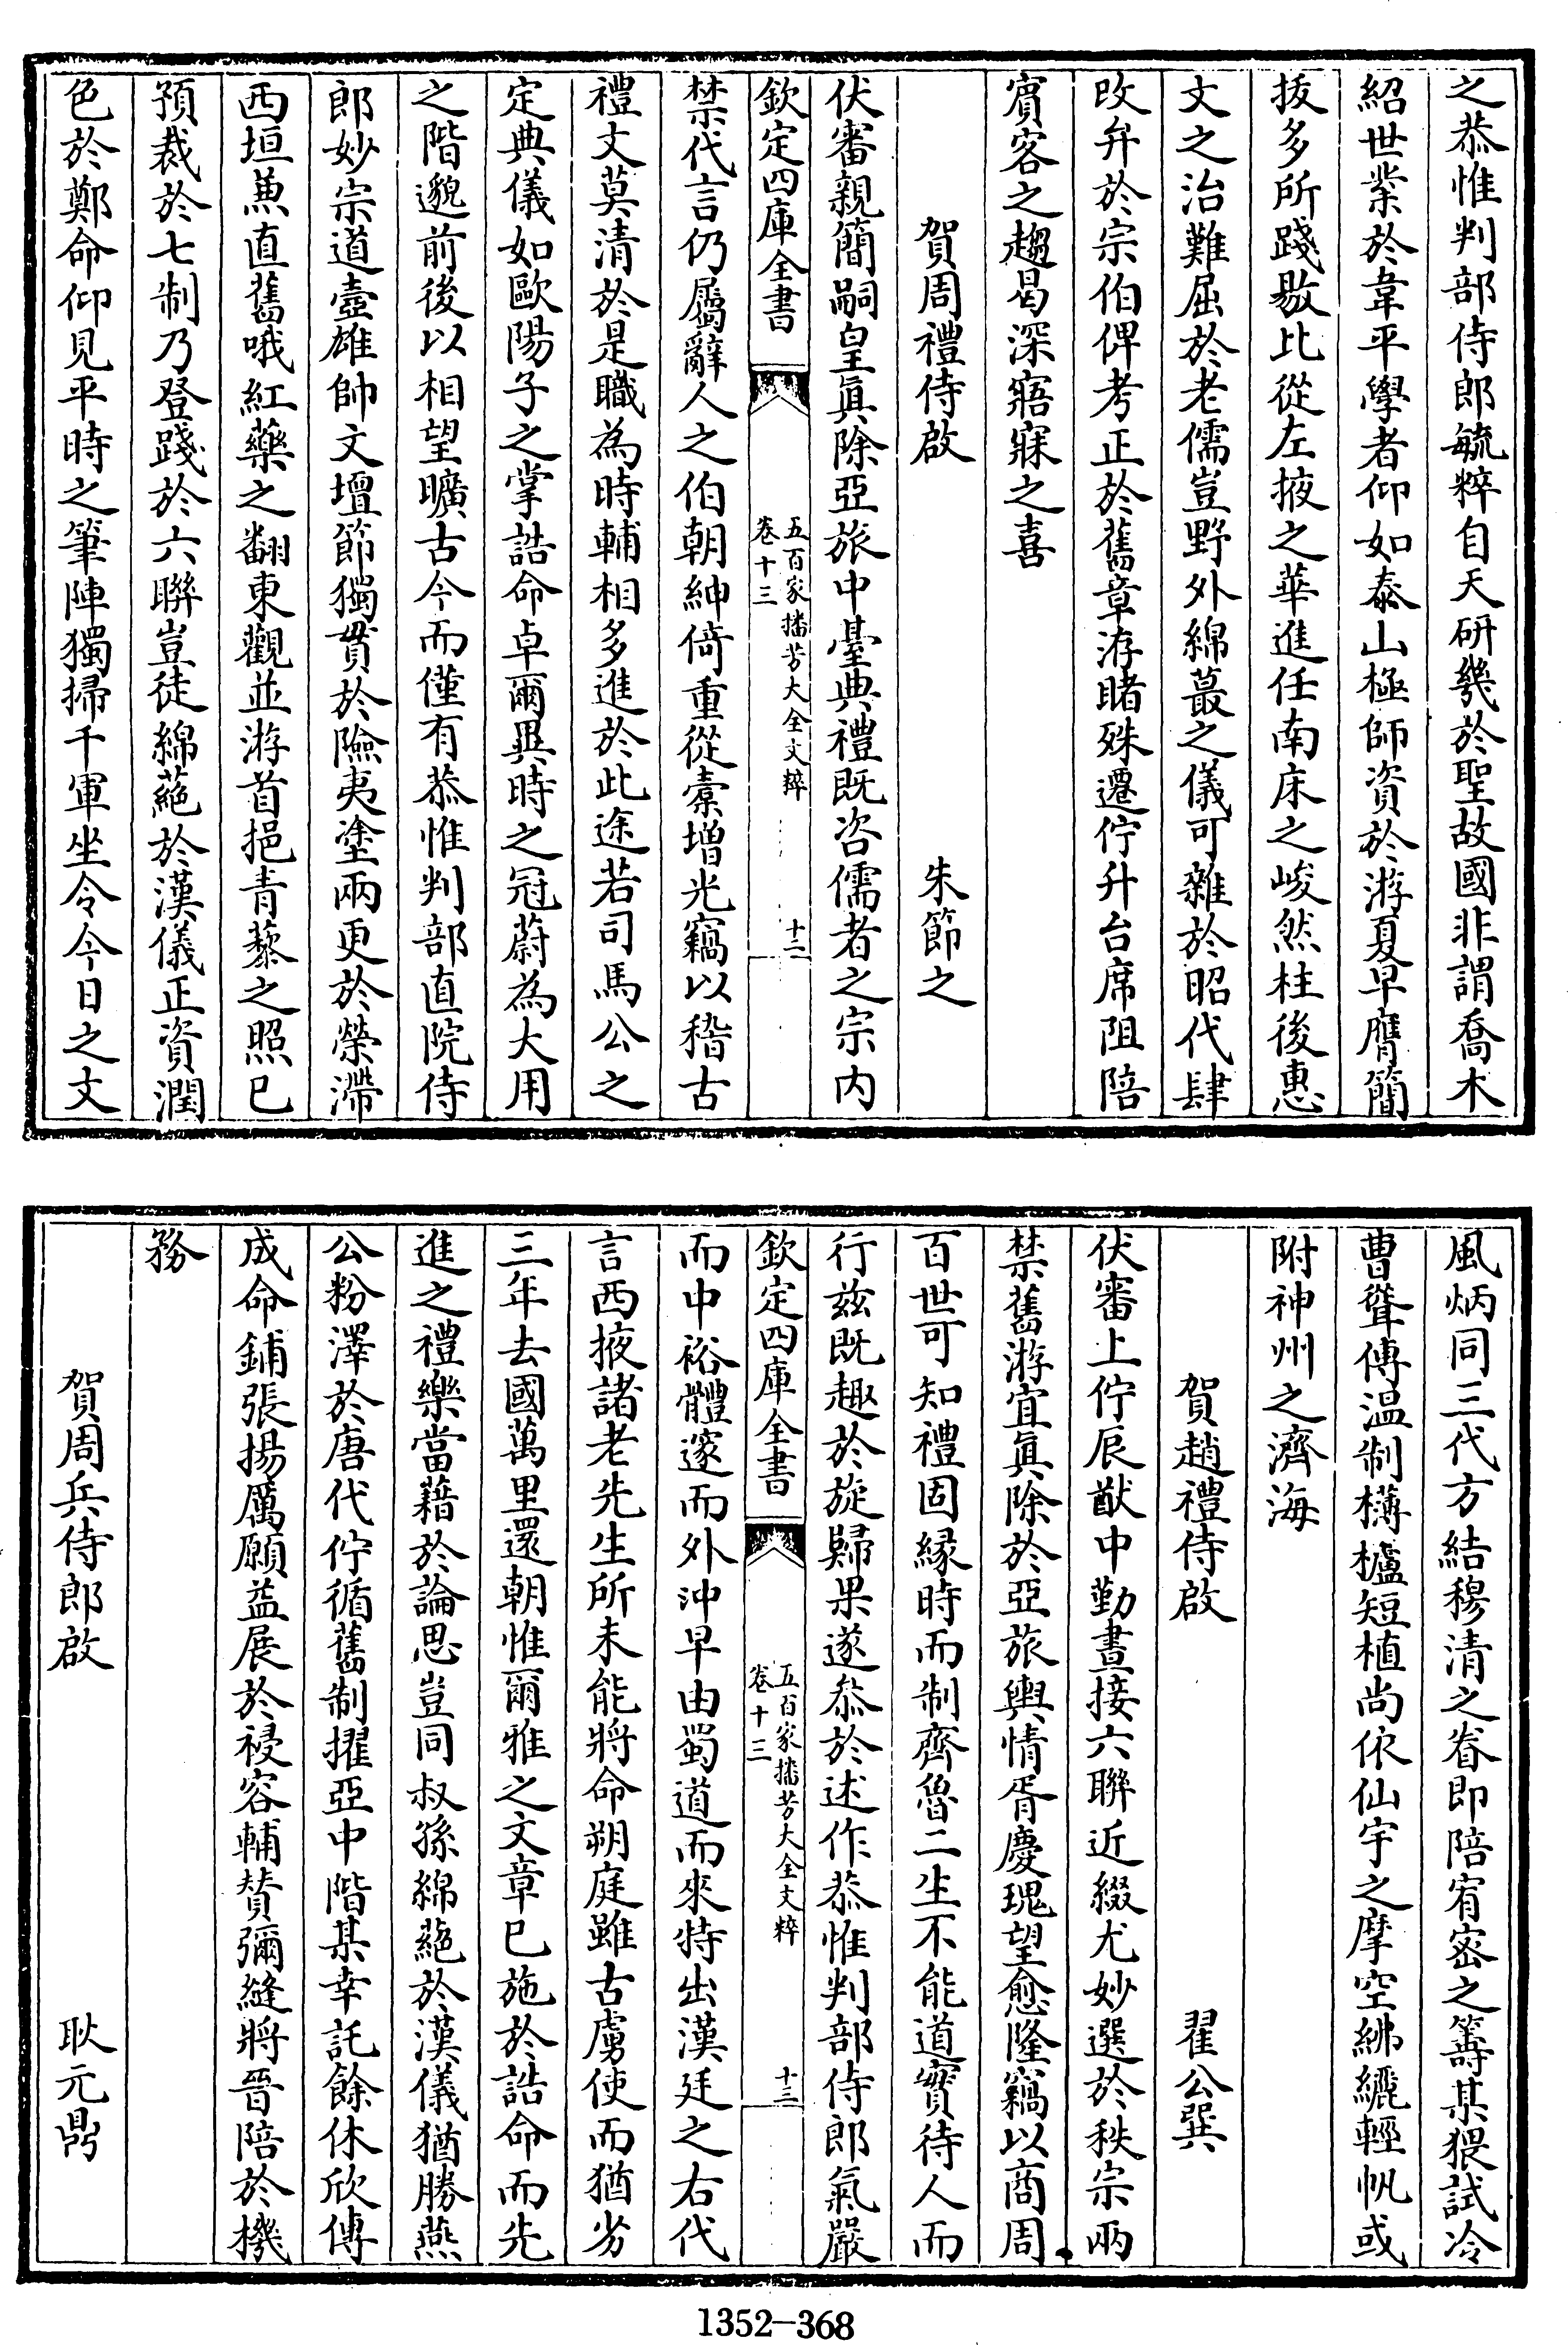 之恭惟判部侍郎毓粹自天研幾於聖故國非謂喬木
紹世業於韋平學者仰如泰山極師資於游夏早膺簡
拔多所踐敭比從左掖之華進任南床之峻然柱後惠
文之治難屈於老儒豈野外綿蕞之儀可雜於昭代肆
改弁於宗伯俾考正於舊章洊睹殊遷佇升台席阻陪
賓客之趨曷深寤寐之喜
賀周禮侍啟 朱節之
伏審親簡嗣皇眞除亞旅中臺典禮既咨儒者之宗内
欽定四庫全書 五百家播芳大全文粹 卷十三 十二
禁代言仍屬辭人之伯朝紳倚重從橐增光竊以稽古
禮文莫清於是職為時輔相多進於此途若司馬公之
定典儀如歐陽子之掌誥命卓爾異時之冠蔚為大用
之階邈前後以相望曠古今而僅有恭惟判部直院侍
郎妙宗道壼雄帥文壇節獨貫於險夷塗兩更於榮滯
西垣兼直舊哦紅藥之翻東觀並游首挹青藜之照已
預裁於七制乃登踐於六聯豈徒綿蕝於漢儀正資潤
色於鄭命仰見平時之筆陣獨掃千軍坐令今日之文
風炳同三代方結穆清之眷即陪宥密之籌某猥試冷
曹聳傳温制欂櫨短植尚依仙宇之摩空紼纚輕帆或
附神州之濟海
賀趙禮侍啟 翟公巽
伏審上佇辰猷中勤晝接六聯近綴尤妙選於秩宗兩
禁舊游宜眞除於亞旅輿情胥慶瑰望愈隆竊以商周
百世可知禮固緣時而制齊魯二生不能道實待人而
行兹既趣於旋歸果遂叅於述作恭惟判部侍郎氣嚴
欽定四庫全書 五百家播芳大全文粹 卷十三 十三
而中裕體邃而外沖早由蜀道而來特出漢廷之右代
言西掖諸老先生所未能將命朔庭雖古虜使而猶劣
三年去國萬里還朝惟爾雅之文章已施於誥命而先
進之禮樂當藉於論思豈同叔孫綿蕝於漢儀猶勝燕
公粉澤於唐代佇循舊制擢亞中階某幸託餘休欣傳
成命鋪張揚厲願益展於祲容輔賛彌縫將晉陪於機
務
賀周兵侍郎啟 耿元鼎
1352—368